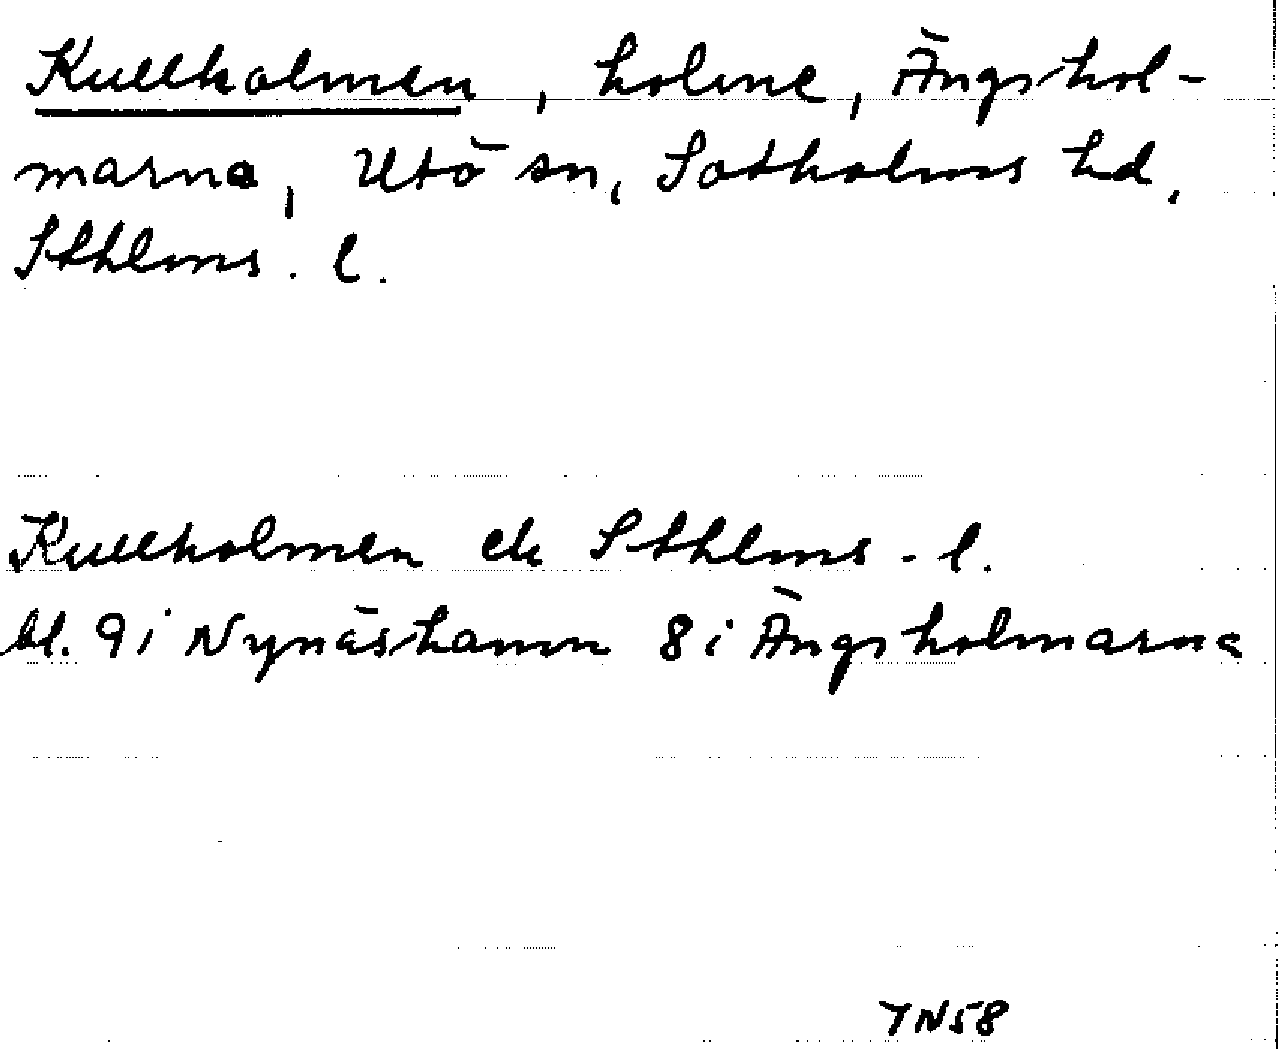 Kullholmen, holme, Ängshol-
marna, Utö sn, Sotholms hd,
Sthlms. l.
Kullholmen ek Sthlms - l.
bl. 9 i Nynäshamn 8 i Ängsholmarna
YN58